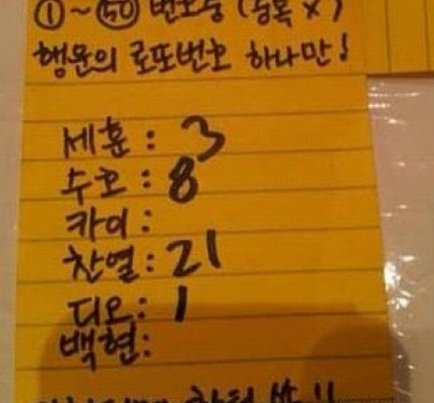 ①~㊿ 번호중 (중복 X)
행운의 로또번호 하나만!
세훈 : 3
수호 : 8
카이 :
찬열 : 21
디오 : 1
백현 :